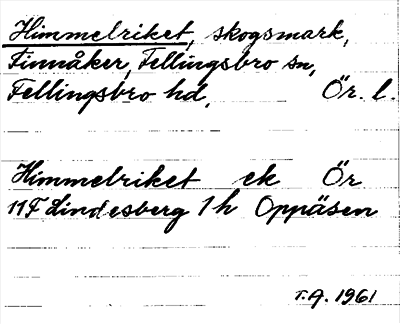 Himmelriket, skogsmark,
Finnåker, Fellingsbro sn,
Fellingsbro hd, Ör. l.
Himmelriket ek Ör
11F Lindesberg 1h Oppåsen
T.A. 1961